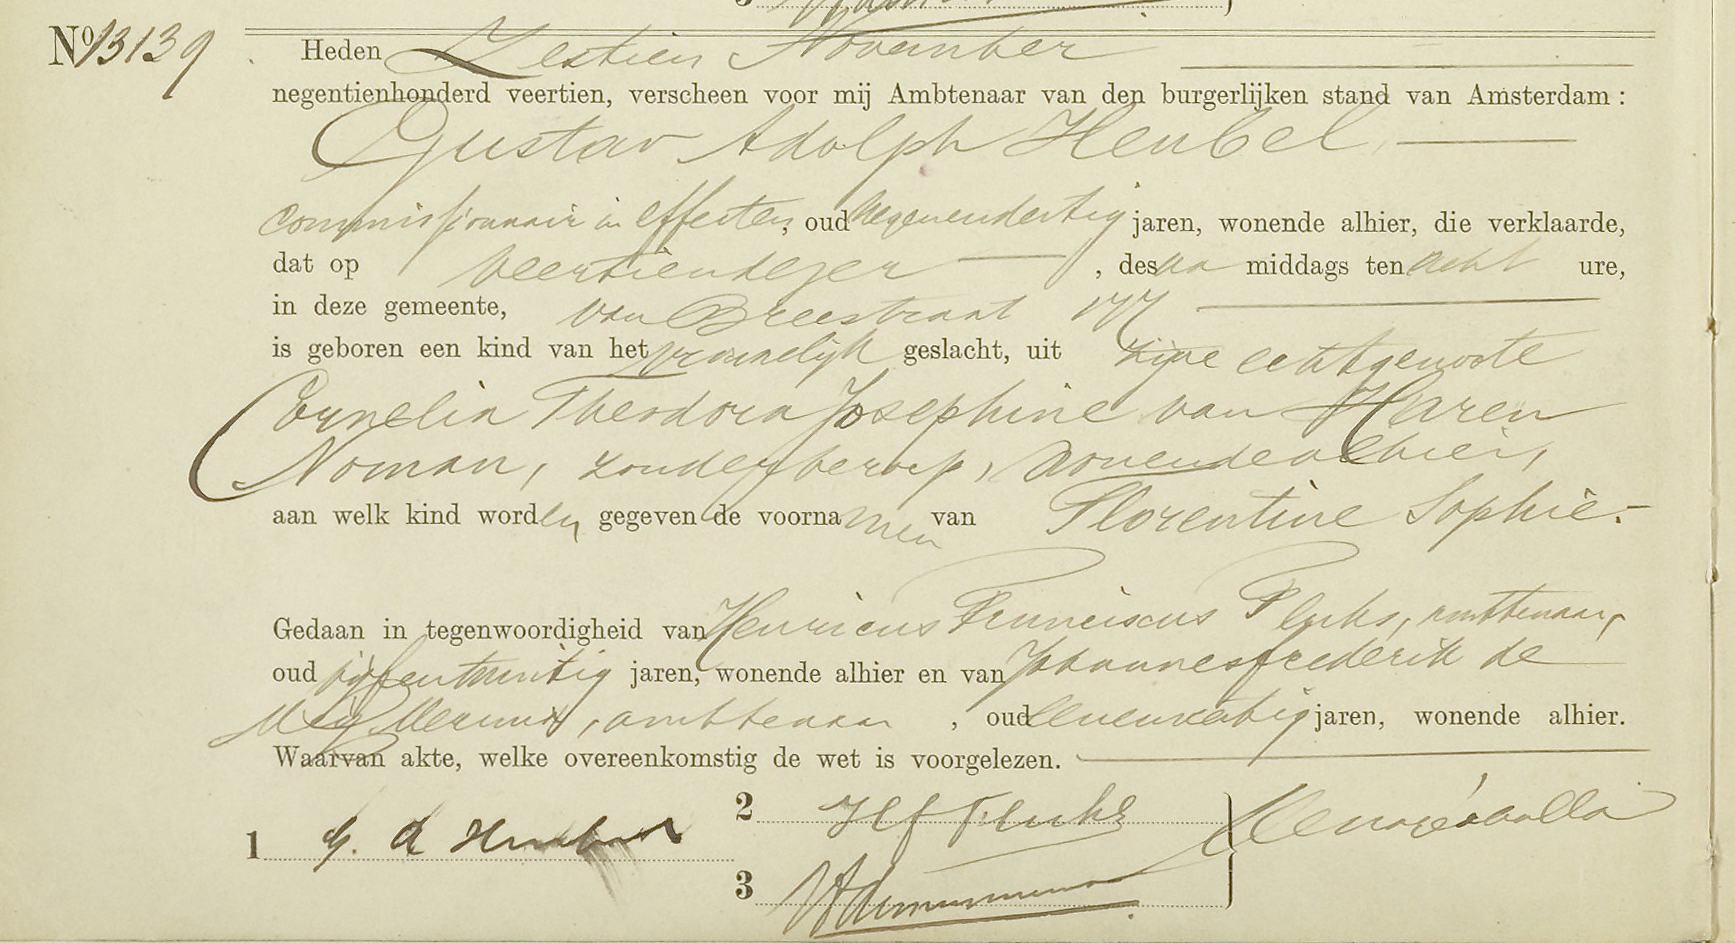 No 13139 Heden Zestien November
negentienhonderd veertien, verscheen voor mij Ambtenaar van den burgerlijken stand van Amsterdam :
Gustav Adolph Heubel,
commissionnair in effecten, oud negenendertig jaren, wonende alhier, die verklaarde,
dat op veertiendezer, des na middags ten acht ure,
in deze gemeente, van Breestraat 177
is geboren een kind van het vrouwelijk geslacht, uit zijne echtgenoote
Cornelia Theodora Josephine van Haren
Noman, zonder beroep, wonende alhier,
aan welk kind worden gegeven de voornamen van Florentine Sophie.
Gedaan in tegenwoordigheid van Henricus Franciscus Fluks, ambtenaar,
oud vijfentwintig jaren, wonende alhier en van Johannes Frederik de
, ambtenaar, oud jaren, wonende alhier.
Waarvan akte, welke overeenkomstig de wet is voorgelezen.
1 G. A. Heubel
2 H F Fluks
3